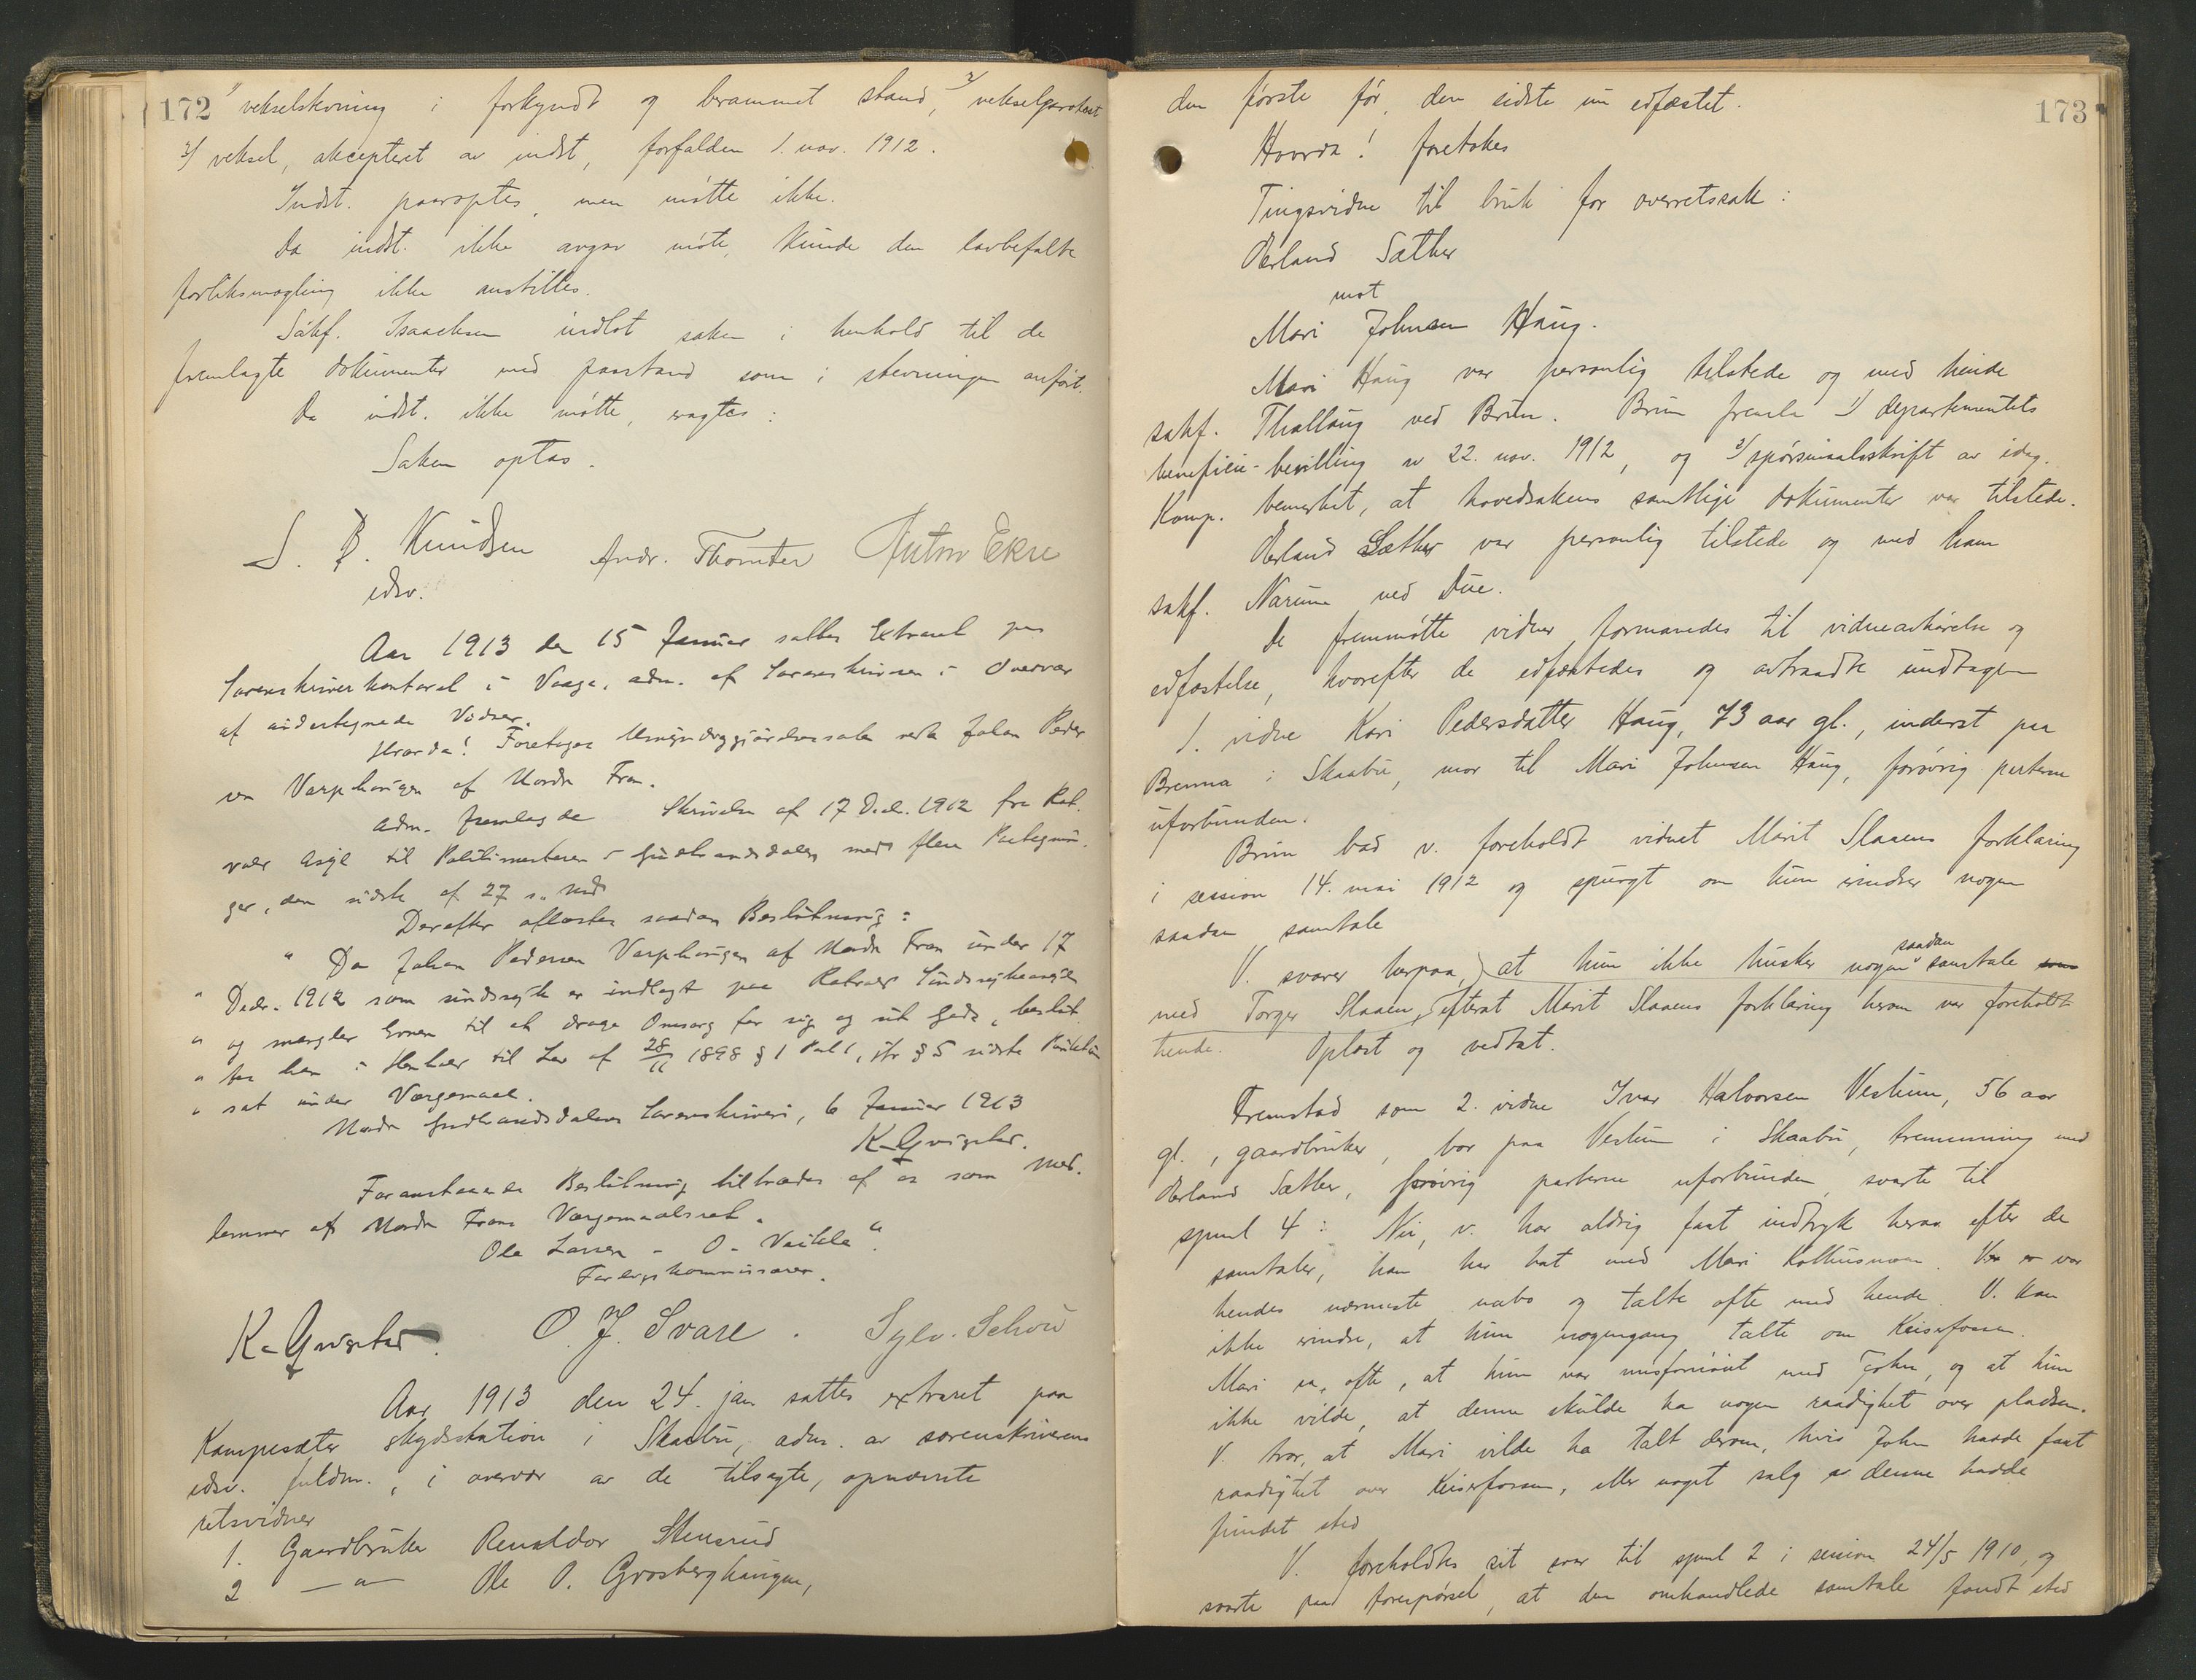 172 1) vekselstevning i forkyndt og berammet stand, 2/ vekselprotest
3/ veksel, akcepteret av indst, forfalden 1. nov. 1912.
Indst. paaroptes, men møtte ikke.
Da indst. ikke avgav møte, kunde den lovbefalte
forliksmægling ikke anstilles.
Sakf. Isaachsen indlot saken i henhold til de
fremlagte dokumenter med paastand som i stevningen anført.
Da indst. ikke møtte, vagtes:
Saken optas.
S. B. Knudsen Andr. Thomter Anton Ekre
edsv.
Aar 1913 den 15 Januar sattes Extraret paa
Sorenskriverkontoret i Vaage, adm. af Sorenskriveren i Overvær
af undertegnede Vidner.
Hvorda! Foretages Umyndiggjørelsessaken vedk Johan Peder
sen Varphaugen af Nordre Fron.
Adm. fremlagde Skrivelse af 17 Decbr. 1912 fra Rot
volds Asyl til Politimesteren i Gudbrandsdalen med flere Paategnin-
ger, den sidste af 27 s. Md
Derefter aflæstes saadan Beslutning:
" Da Johan Pedersen Varphaugen af Nordre Fron under 17
" Decbr. 1912 som sindssyk er indlagt paa Rotvold Sindssykeasyl
" og mangler Evnen til at drage Omsorg for sig og sit Gods, beslut
" tes han i Henhold til Lov af 28/11 1898 § 1 Post 1, jfr § 5 sidste Punktum
" sat under Værgemaal.
Nordre Gudbrandsdalens Sorenskriveri, 6 Januar 1913
K. Qvigstad.
Foranstaaende Beslutning tiltrædes af os som Med.
lemmer af Nordre Frons Værgemaalsret.
Ole Larsen - O. Veikle"
Forligskommissærer.
K. Qvigstad. O. J. Svare. Sylv. Schou
Aar 1913 den 24. jan. sattes extraret paa
Kampesæter skydsstation i Skaabu, adm. av sorenskriverens
edsv. fuldm., i overvær av de tilsagte, opnævnte
retsvidner
1. Gaardbruker Renaldor Stensrud
2 — " — Ole O. Grosberghaugen,
173
den første før, den sidste nu edfæstet.
Hvorda! foretokes
Tingsvidne til bruk for overretssak:
Erland Sæther
mot
Mari Johnsen Haug.
Mari Haug var personlig tilstede og med hende
sakf. Thallaug ved Brun. Brun fremla 1) departementets
beneficie-bevilling av 22. nov. 1912, og 2/ spørsmaalsskrift av idag.
Komp. bemerket, at hovedsakens samtlige dokumenter var tilstede.
Erland Sæther var personlig tilstede og med ham
sakf. Narum ved Due.
De fremmøtte vidner formanedes til vidneavhørelse og
edfæstelse, hvorefter de edfæstedes og avtraadte undtagen
1. vidne Kari Pedersdatter Haug, 73 aar gl., inderst paa
Brenna i Skaabu, mor til Mari Johnsen Haug, forøvrig parterne
uforbunden.
Brun bad v. foreholdt vidnet Marit Slaaens forklaring
i session 14. mai 1912 og spurgt om hun erindrer nogen
saadan samtale
V. svarer herpaa, at hun ikke husker nogen saadan samtale som
med Torger Slaaen, efterat Marit Slaaens forklaring herom var foreholdt
hende. Oplæst og vedtat.
Fremstod som 2. vidne Ivar Halvorsen Vestum, 56 aar
gl., gaardbruker, bor paa Vestum i Skaabu, tremenning med
Erland Sæther, forøvrig parterne uforbunden, svarte til
spml 4: Nei, v. har aldrig faat indtryk herav efter de
samtaler, han har hat med Mari Kolhusmoen. V. er var
hendes nærmeste nabo og talte ofte med hende. V. kan
ikke erindre, at hun nogengang talte om Keiserfossen.
Mari sa ofte, at hun var misfornøiet med John, og at hun
ikke vilde, at denne skulde ha nogen raadighet over pladsen.
V. tror, at Mari vilde ha talt derom, hvis John hadde faat
raadighet over Keiserfossen, eller noget salg av denne hadde
fundet sted
V. foreholdtes sit svar til spml 2 i session 24/5 1910, og
svarte paa forespørsel, at den omhandlede samtale fandt sted